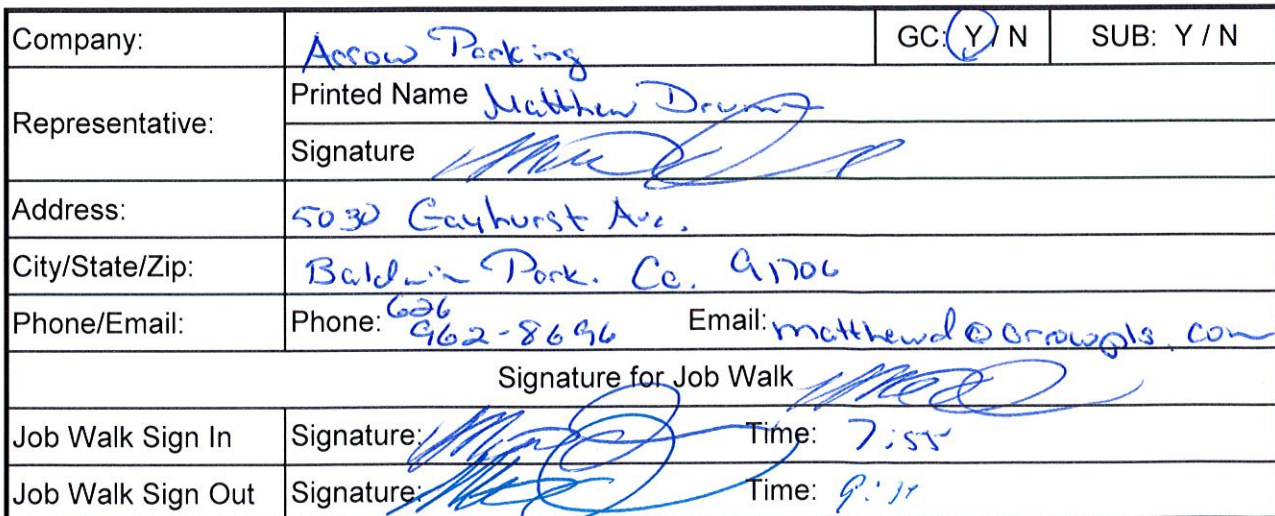 Company: Arrow Parking GC: Y / N SUB: Y / N
Representative: Printed Name Matthew
Signature
Address: 5030 Gayhurst Ave.
City/State/Zip: Baldwin Park. Ca. 91706
Phone/Email: Phone: 626 962-8696 Email: matthewd@arrowpls.com
Signature for Job Walk
Job Walk Sign In Signature: Time: 7:55
Job Walk Sign Out Signature: Time: